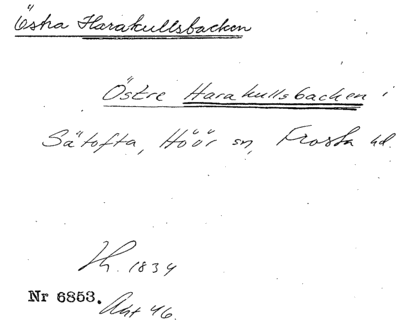 Östra Harakullsbacken
Östre Harakullsbacken i
Sätofta, Höör sn, Frosta hd.
Lh. 1834
Nr 6853.
Akt 46.